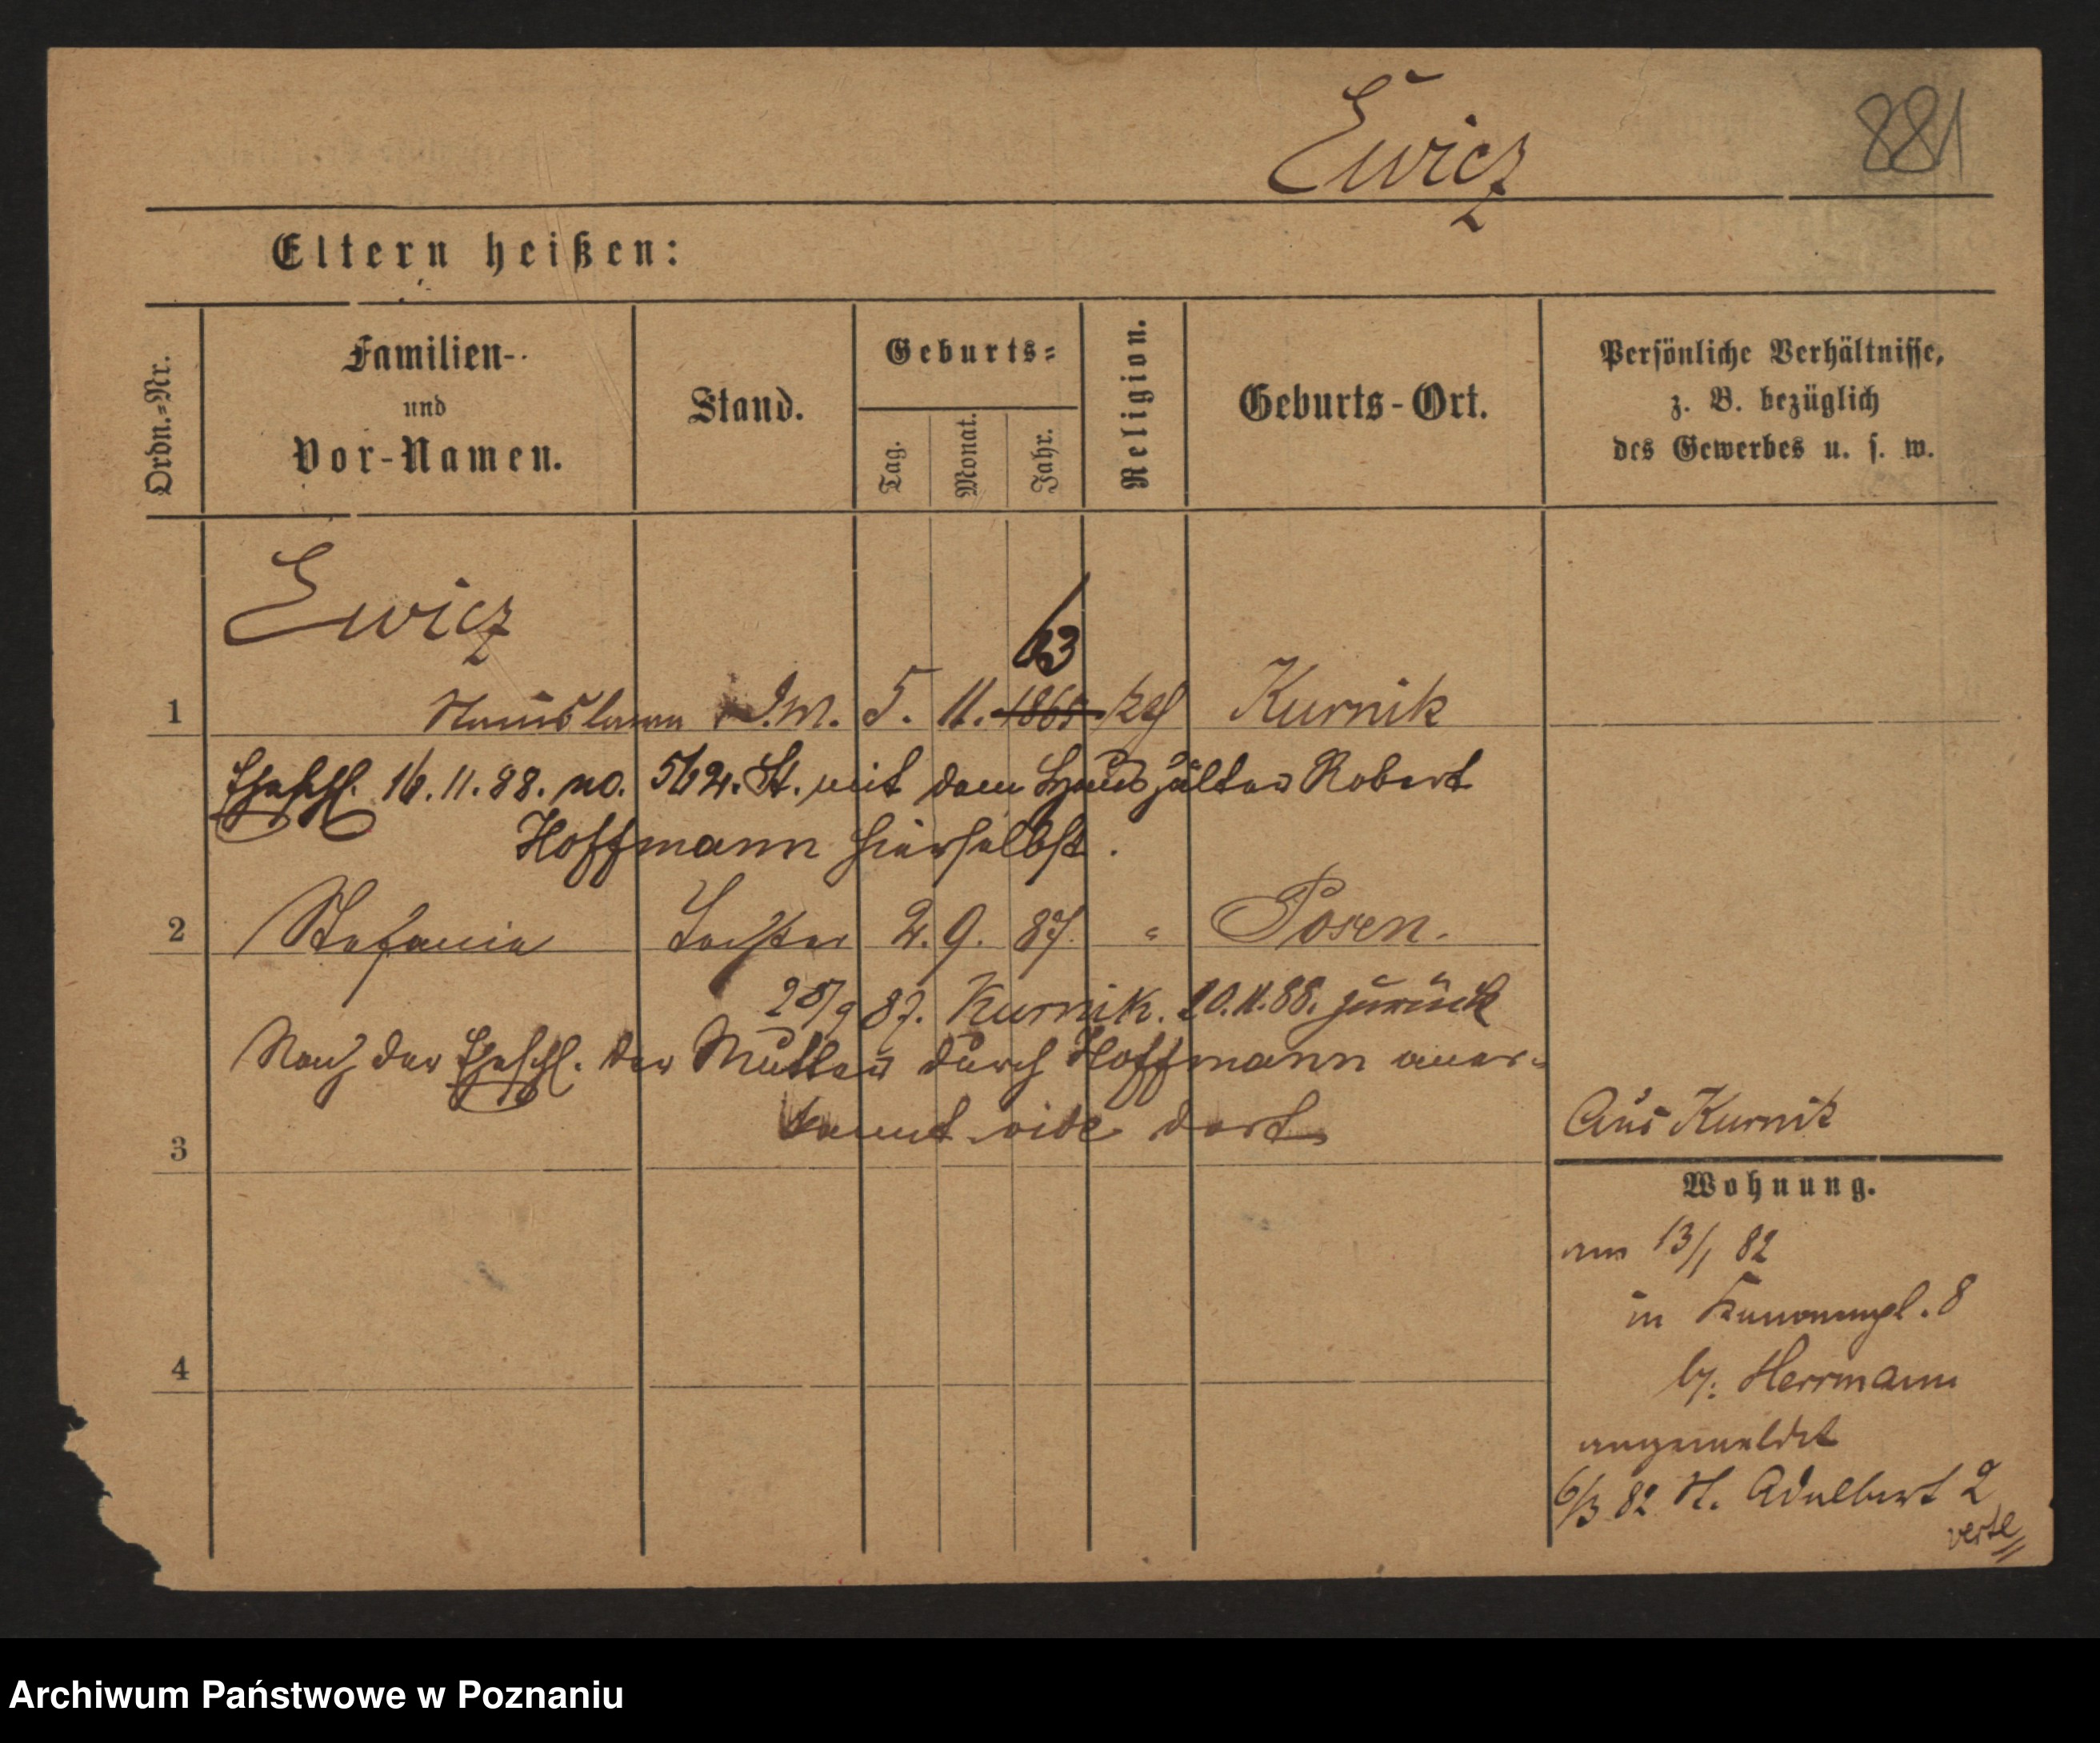 Ewicz
881
Eltern heißen:
Ordn.=Nr.
Familien-
und
Vor-Namen.
Stand.
Geburts=
Tag.
Monat.
Jahr.
Religion.
Geburts-Ort.
Persönliche Verhältnisse,
z. B. bezüglich
des Gewerbes u. s. w.
Ewicz
63
1 Stanislawa D.M. 5. 11. 1865 kth Kurnik
Eheschl. 16.11.88. no. 562. St. mit dem Haushälter Robert
Hoffmann hierselbst.
2 Stefania Tochter 2. 9. 87. " Posen.
25/9 87. Kurnik. 20.11.88. zurück
Nach der Eheschl. der Mutter durch Hoffmann aner-
kannt vide dort
3
Aus Kurnik
Wohnung.
am 13/1 82
in 8
4
by. Herrmann
angemeldet
6/3 82 St. Adalbert 2
verte
Archiwum Państwowe w Poznaniu